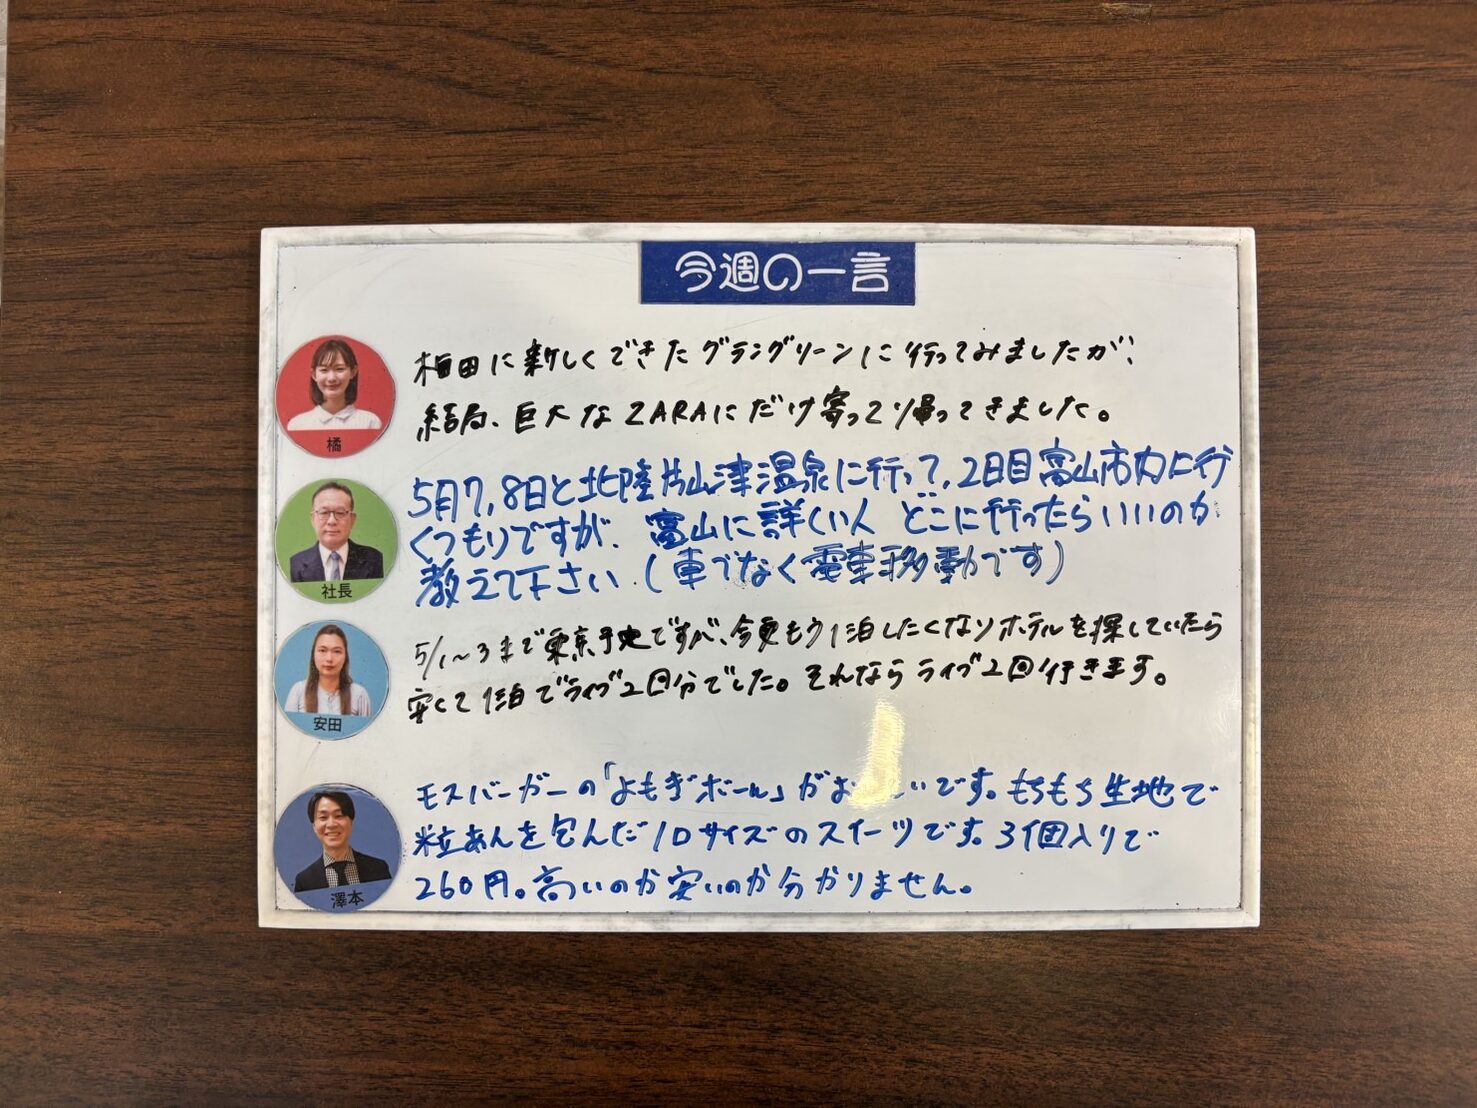 今週の一言
梅田に新しくできたグラングリーンに行ってみましたが、
結局、巨大なZARAにだけ寄って帰ってきました。
橘
5月7,8日と北陸片山津温泉に行って,2日目富山市内に行
くつもりですが、富山に詳しい人 どこに行ったらいいのか
教えて下さい.(車でなく電車移動です)
社長
5/1~3まで東京予定ですが、今更もう1泊したくなりホテルを探していたら
安くて1泊でライブ2回分でした。それならライブ2回行きます。
安田
モスバーガーの「よもぎボール」がお いです。もちもち生地で
粒あんを包んだ1口サイズのスイーツです。3個入りで
260円。高いのか安いのか分かりません。
澤本